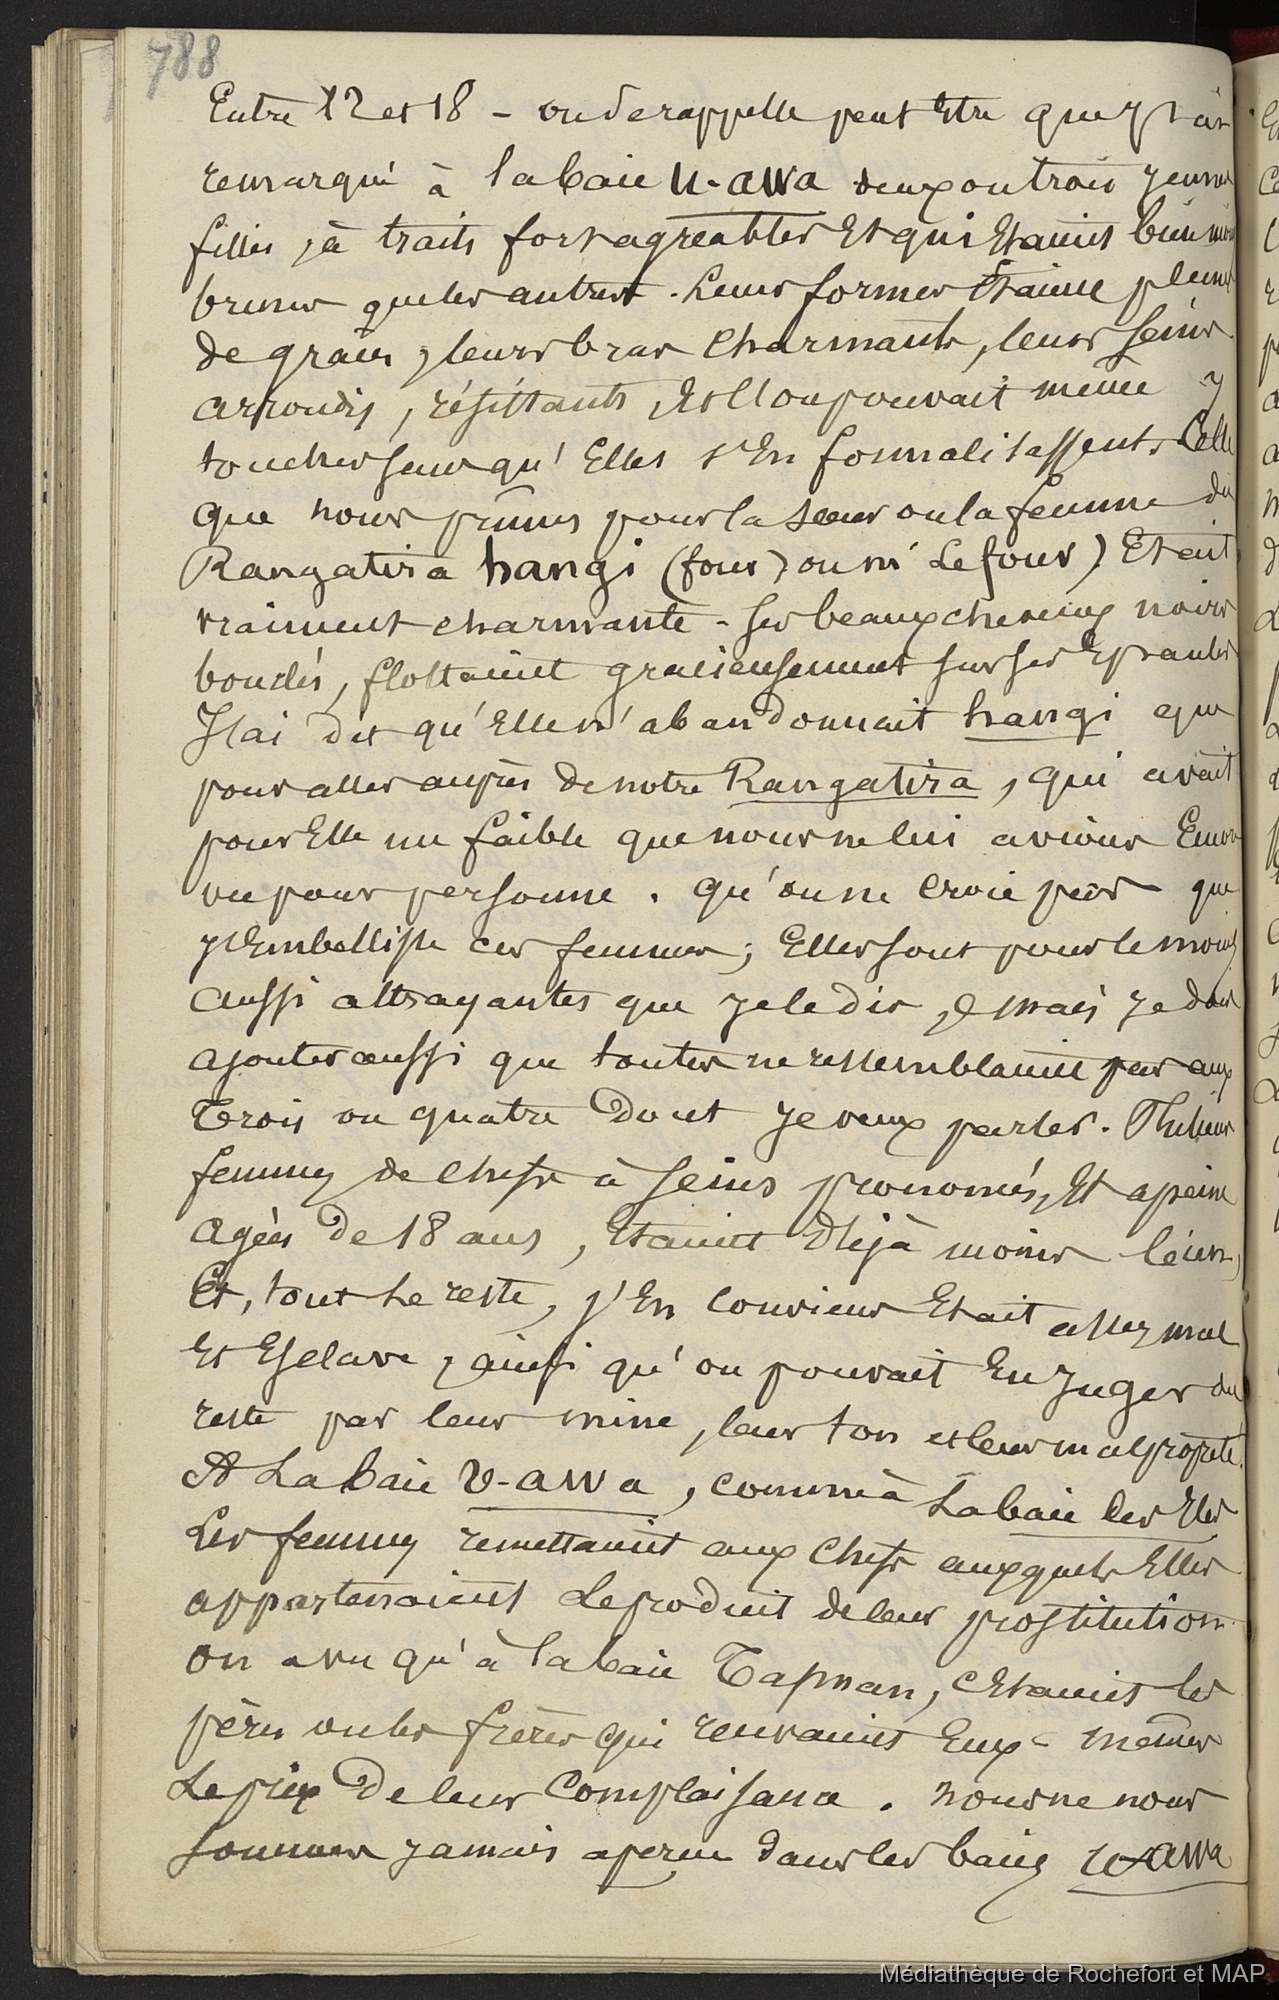 788
Entre 12 et 18 - on se rappelle peut Etre que j'ai
remarqué à la baie U-awa deux ou trois jeunes
filles, à traits fort agréables Et qui Etaient bien moins
brunes que les autres. Leurs formes Etaient pleines
de graces, leurs bras charmants, leurs seins
arrondis, résistants, et l'on pouvait même y
toucher sans qu'Elles s'En formalisassent. Celle
que nous primes pour la sœur ou la femme du
Rangatira hangi (four) ou mr Le four) Etait
vraiment charmante - ses beaux cheveux noirs
bouclés, flottaient gracieusement sur ses Epaules
J'ai dit qu'Elle n'abandonnait hangi que
pour aller auprès de notre Rangatira, qui avait
pour Elle un faible que nous ne lui avions Encore
vu pour personne. qu'on ne croie pas que
j'Embellisse ces femmes; Elles sont pour le moins
aussi attrayantes que je le dis, mais je dois
ajouter aussi que toutes ne ressemblaient pas aux
trois ou quatre Dont je veux parler. Plusieurs
femmes de chefs à seins prononcés, Et a peine
agées De 18 ans, Etaient Déjà moins bien,
Et, tout Le reste, j'En conviens Etait assez mal
Et Esclave, ainsi qu'on pouvait En juger du
reste par leur mine, leur ton et leur malpropreté.
A La baie U-awa, comme à La baie des Iles
Les femmes remettaient aux chefs auxquels Elles
appartenaient Le produit de leur prostitution.
on a vu qu'à la baie Tapman, c'Etaient les
pères ou les frères qui recevaient Eux-mêmes
Le prix De leur Complaisance. nous ne nous
sommes jamais aperçu dans les baies U-awa
Médiathèque de Rochefort et MAP